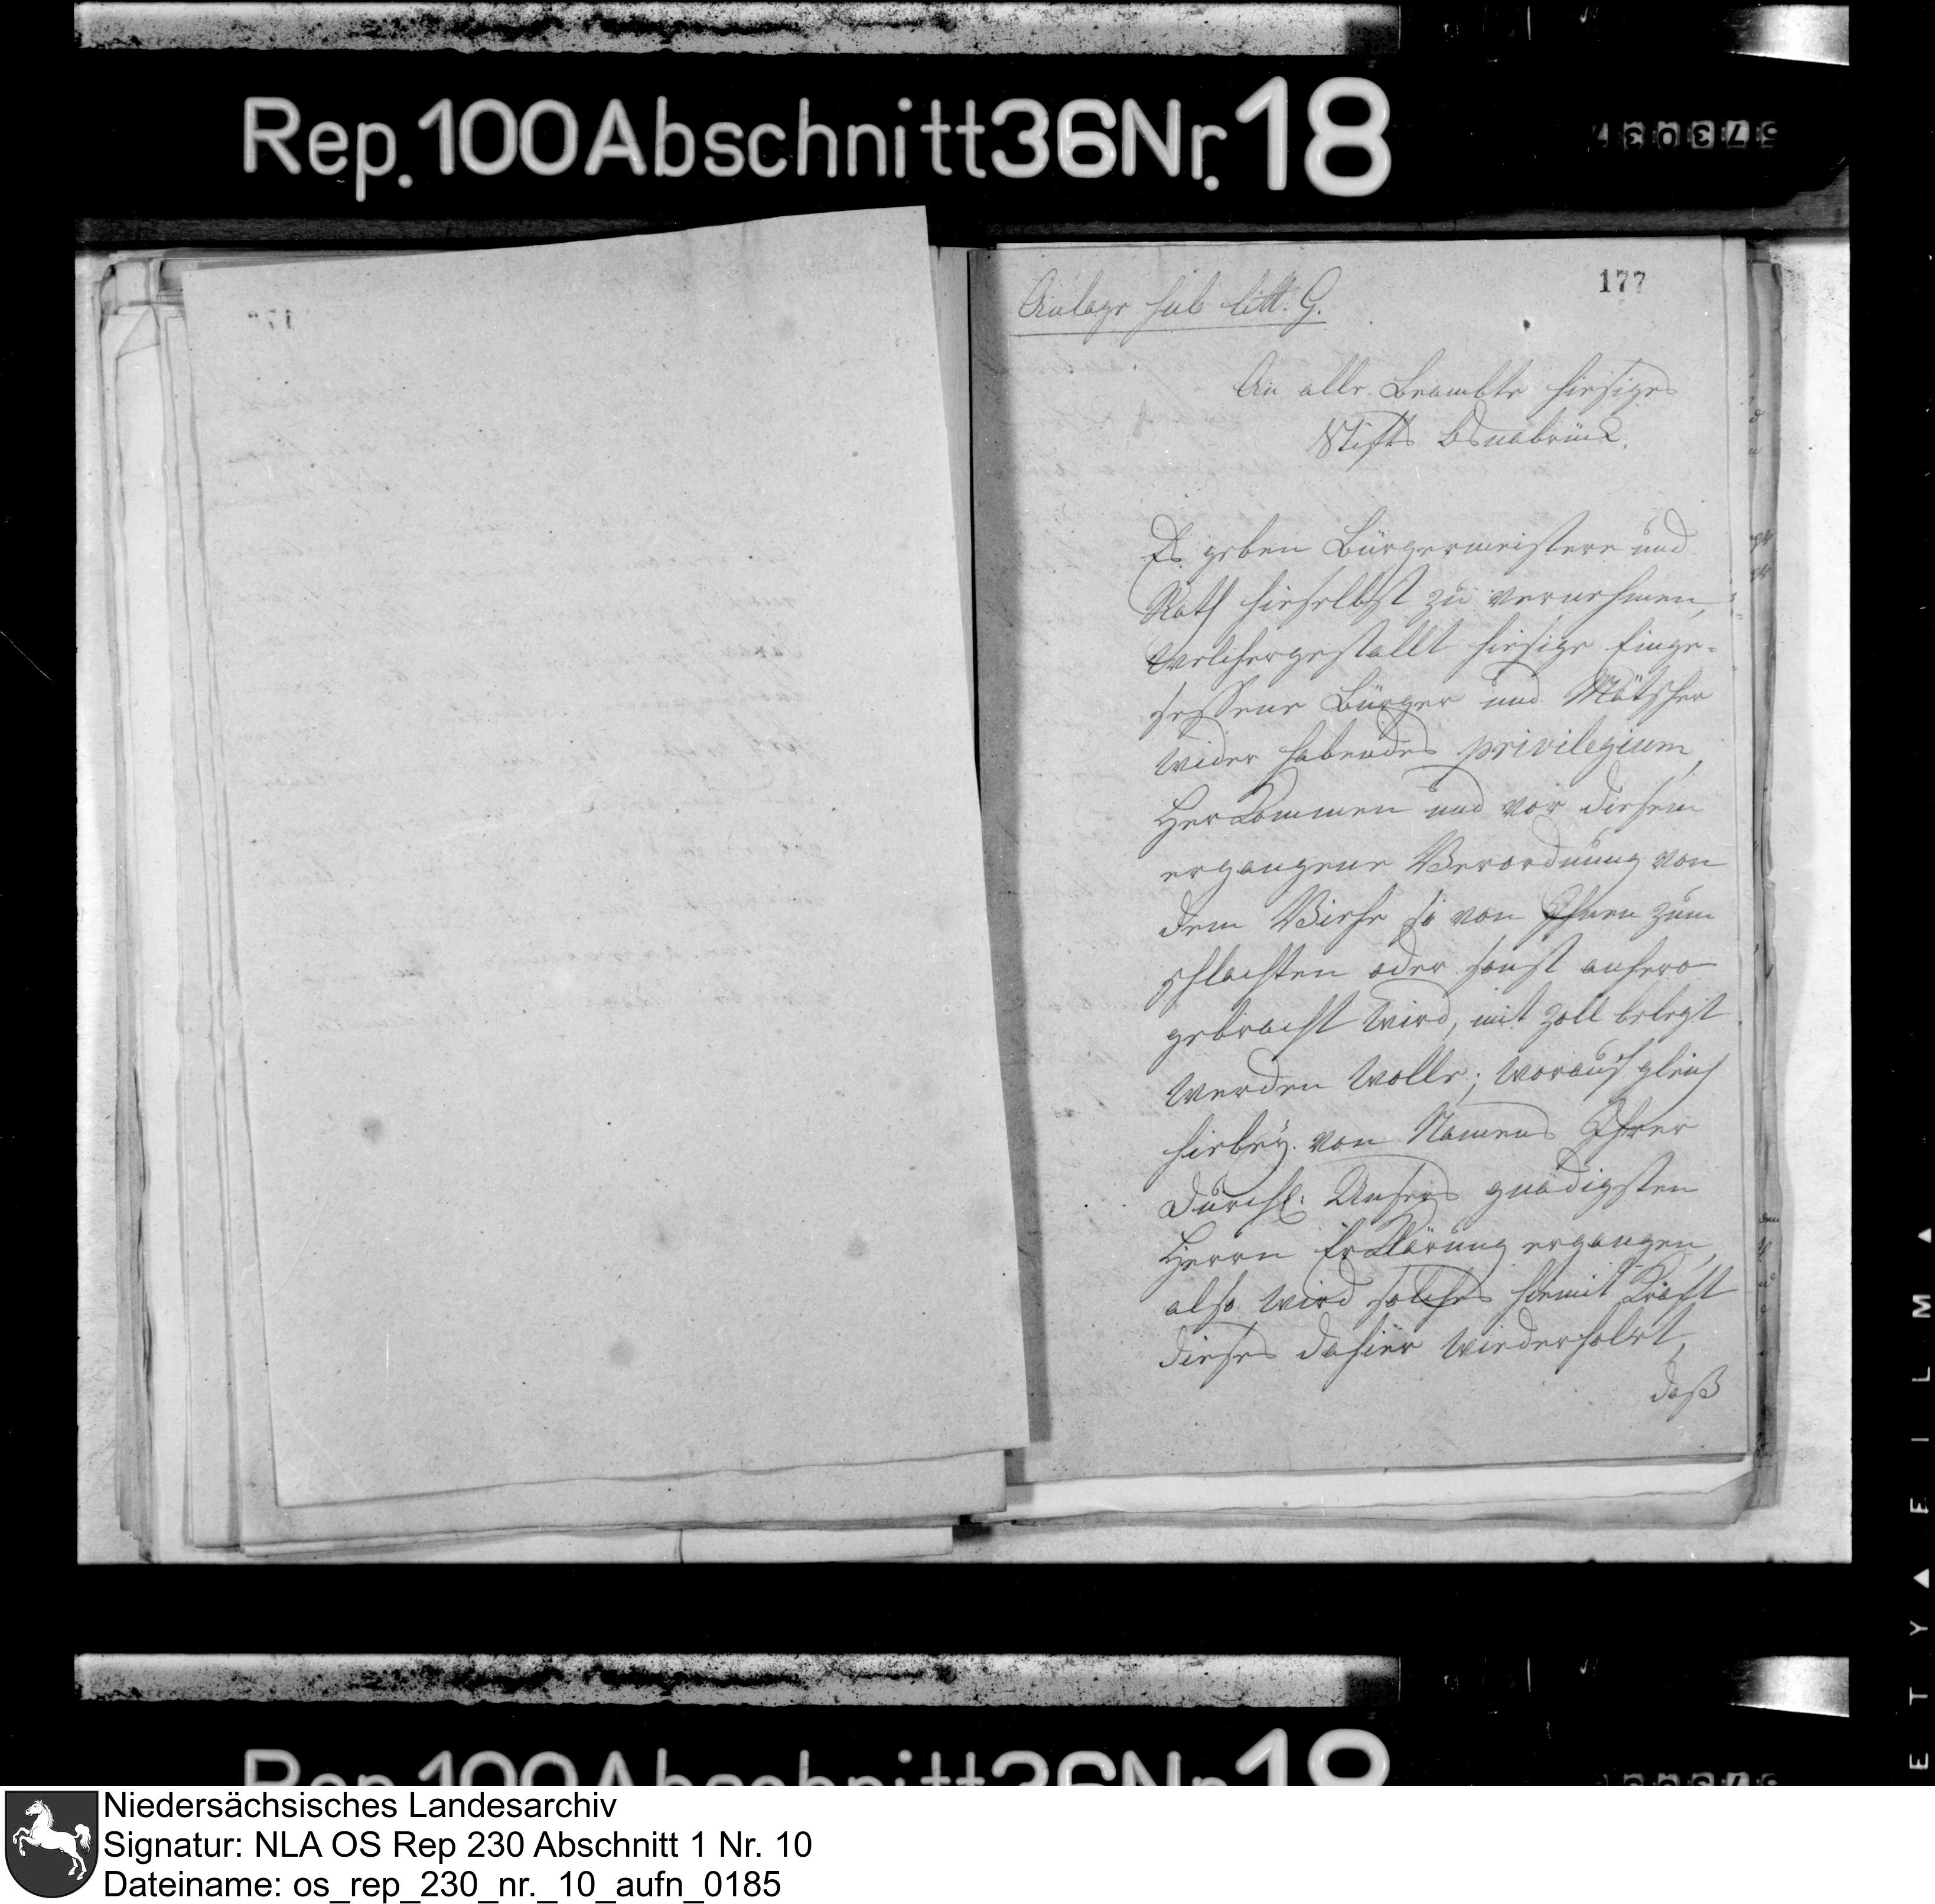 Rep. 100 Abschnitt 36 Nr. 18
177
Anlage sub litt: G.
An alle Beambte hiesiges
Stifts Osnabrück.
Es geben Bürgermeistere und
Rath hieselbst zu vernehmen,
welchergestallt hiesige Einge-
sessene Bürger und
wider habendes privilegium,
Herkommen und vor diesem
ergangene Verordnung von
dem Viehe so von Ihnen zum
schlachten oder sonst anhero
gebracht wird, mit Zoll belegt
werden wolle; worauf gleich
hiebey von Namens Ihrer
Durchl: Unsers gnädigsten
Herrn Erklärung ergangen,
also wird solches hiemit Kraft
dieses dahier wiederholet,
daß
Niedersächsisches Landesarchiv
Signatur: NLA OS Rep 230 Abschnitt 1 Nr. 10
Dateiname: os_rep_230_nr._10_aufn_0185